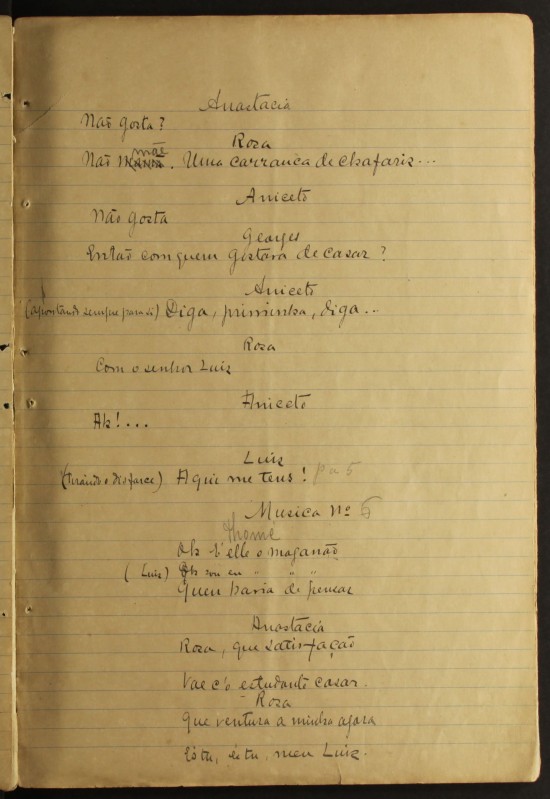 Anastacia
Não gosta?
Rosa
mãe
Não . Uma carranca de chafariz...
Aniceto
Não gosta
Georges
Então com quem gostará de casar?
Aniceto
(apontando sempre para si) Diga, priminha, diga...
Rosa
Com o senhor Luiz
Aniceto
Ah!...
Luiz
(tirando o disfarce) Aqui me tens! pa 5
Musica nº 6
Thomé
Oh! é elle o maganão
(Luiz) Oh sou eu " " "
Quem havia de pensar
Anastacia
Rosa, que satisfação
Vae c'o estudante casar.
Rosa
Que ventura a minha agora
És tu, és tu, meu Luiz.